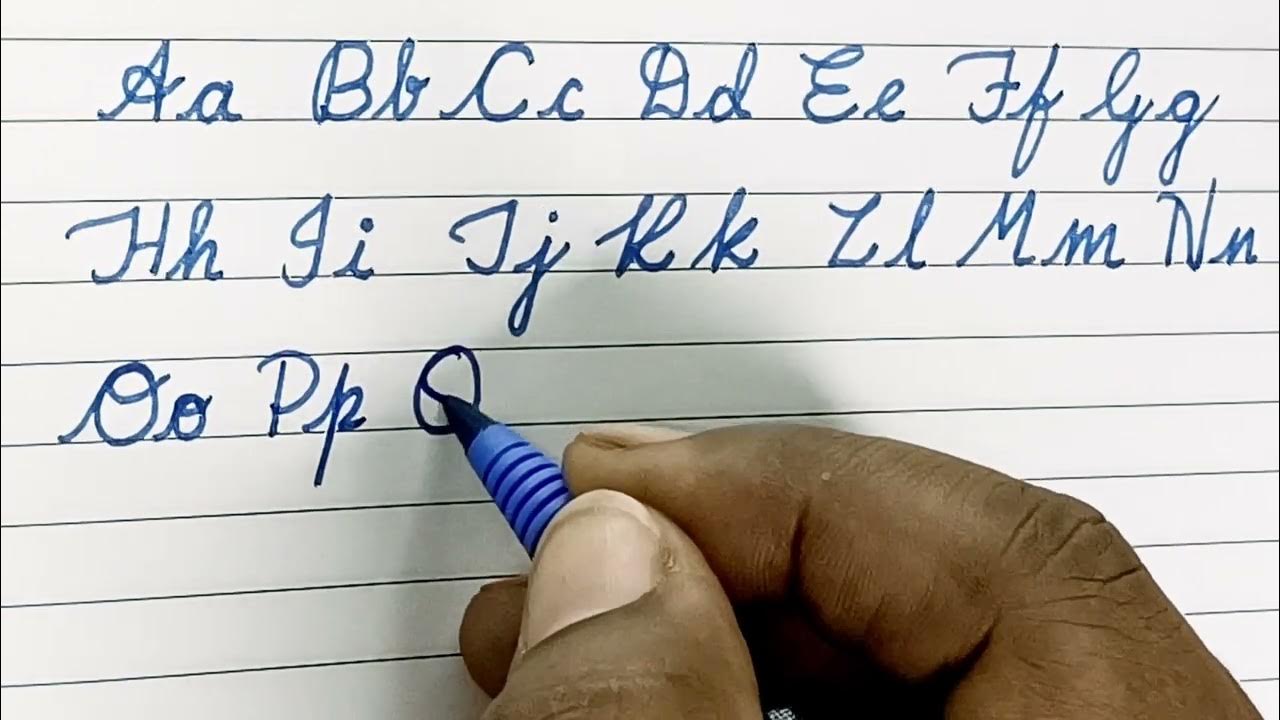 Aa Bb Cc Dd Ee Ff Gg
Hh Ii Jj Kk Ll Mm Nn
Oo Pp O